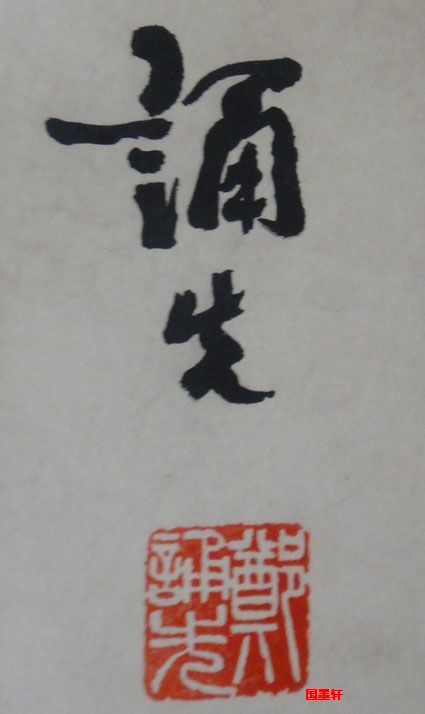 誦先
鄭誦先
国墨轩